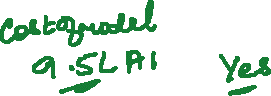 Cost of model
9.5L A1 Yes